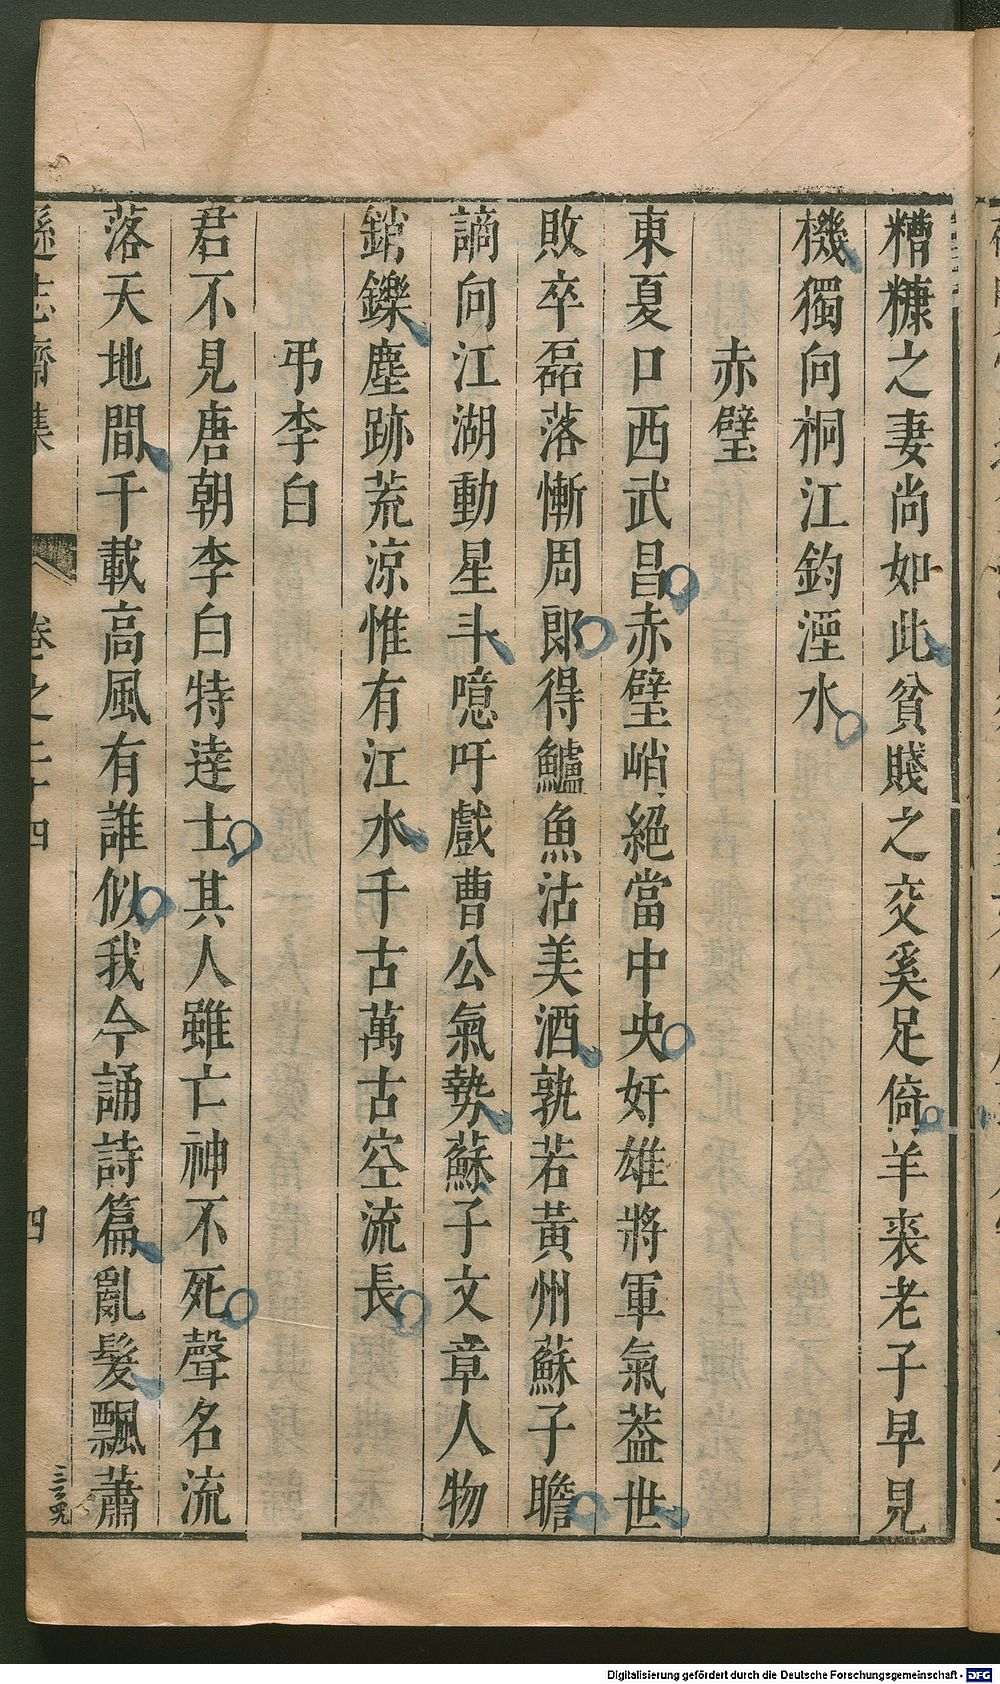 糟糠之妻尚如此貧賤之交奚足倚羊裘老子早見
機獨向桐江釣湮水
赤壁
東夏口西武昌赤壁峭絕當中央奸雄將軍氣蓋世
敗卒磊落慚周郎得鱸魚沽美酒孰若黃州蘇子瞻
謫向江湖動星斗噫吁戲曹公氣勢蘇子文章人物
銷鑠塵跡荒涼惟有江水千古萬古空流長
弔李白
君不見唐朝李白特達士其人雖亡神不死聲名流
落天地間千載高風有誰似我今誦詩篇亂髮飄蕭
遜志齋集 卷之二十四 四
Digitalisierung gefördert durch die Deutsche Forschungsgemeinschaft - DFG